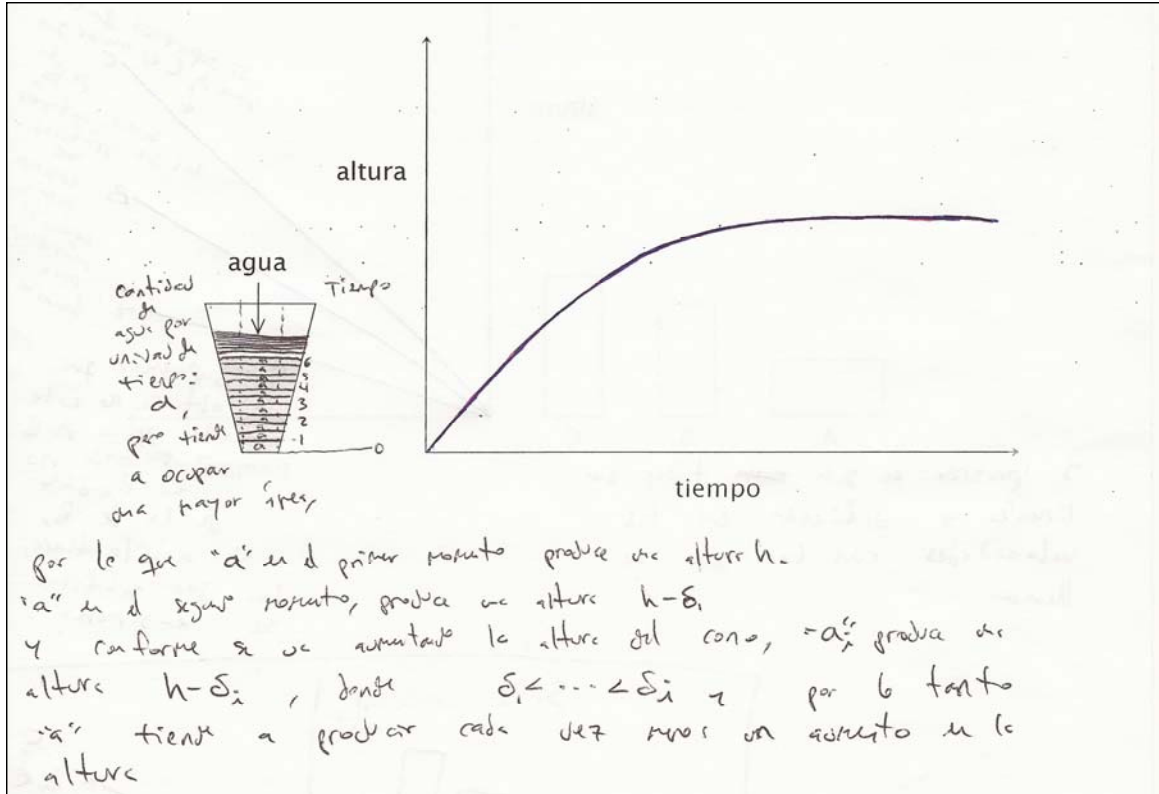 altura
agua
Tiempo
cantidad
de
agua por
unidad de
tiempo:
a,
pero tiende
a ocupar
una mayor área,
a
6
5
4
3
2
1
0
tiempo
por lo que "a" en el primer momento produce una altura h.
"a" en el segundo momento, produce una altura h-δ₁
y conforme se va aumentando la altura del cono, "aᵢ" produce una
altura h-δᵢ, donde δ₁< ... <δᵢ y por lo tanto
"a" tiende a producir cada vez menos un aumento en la
altura